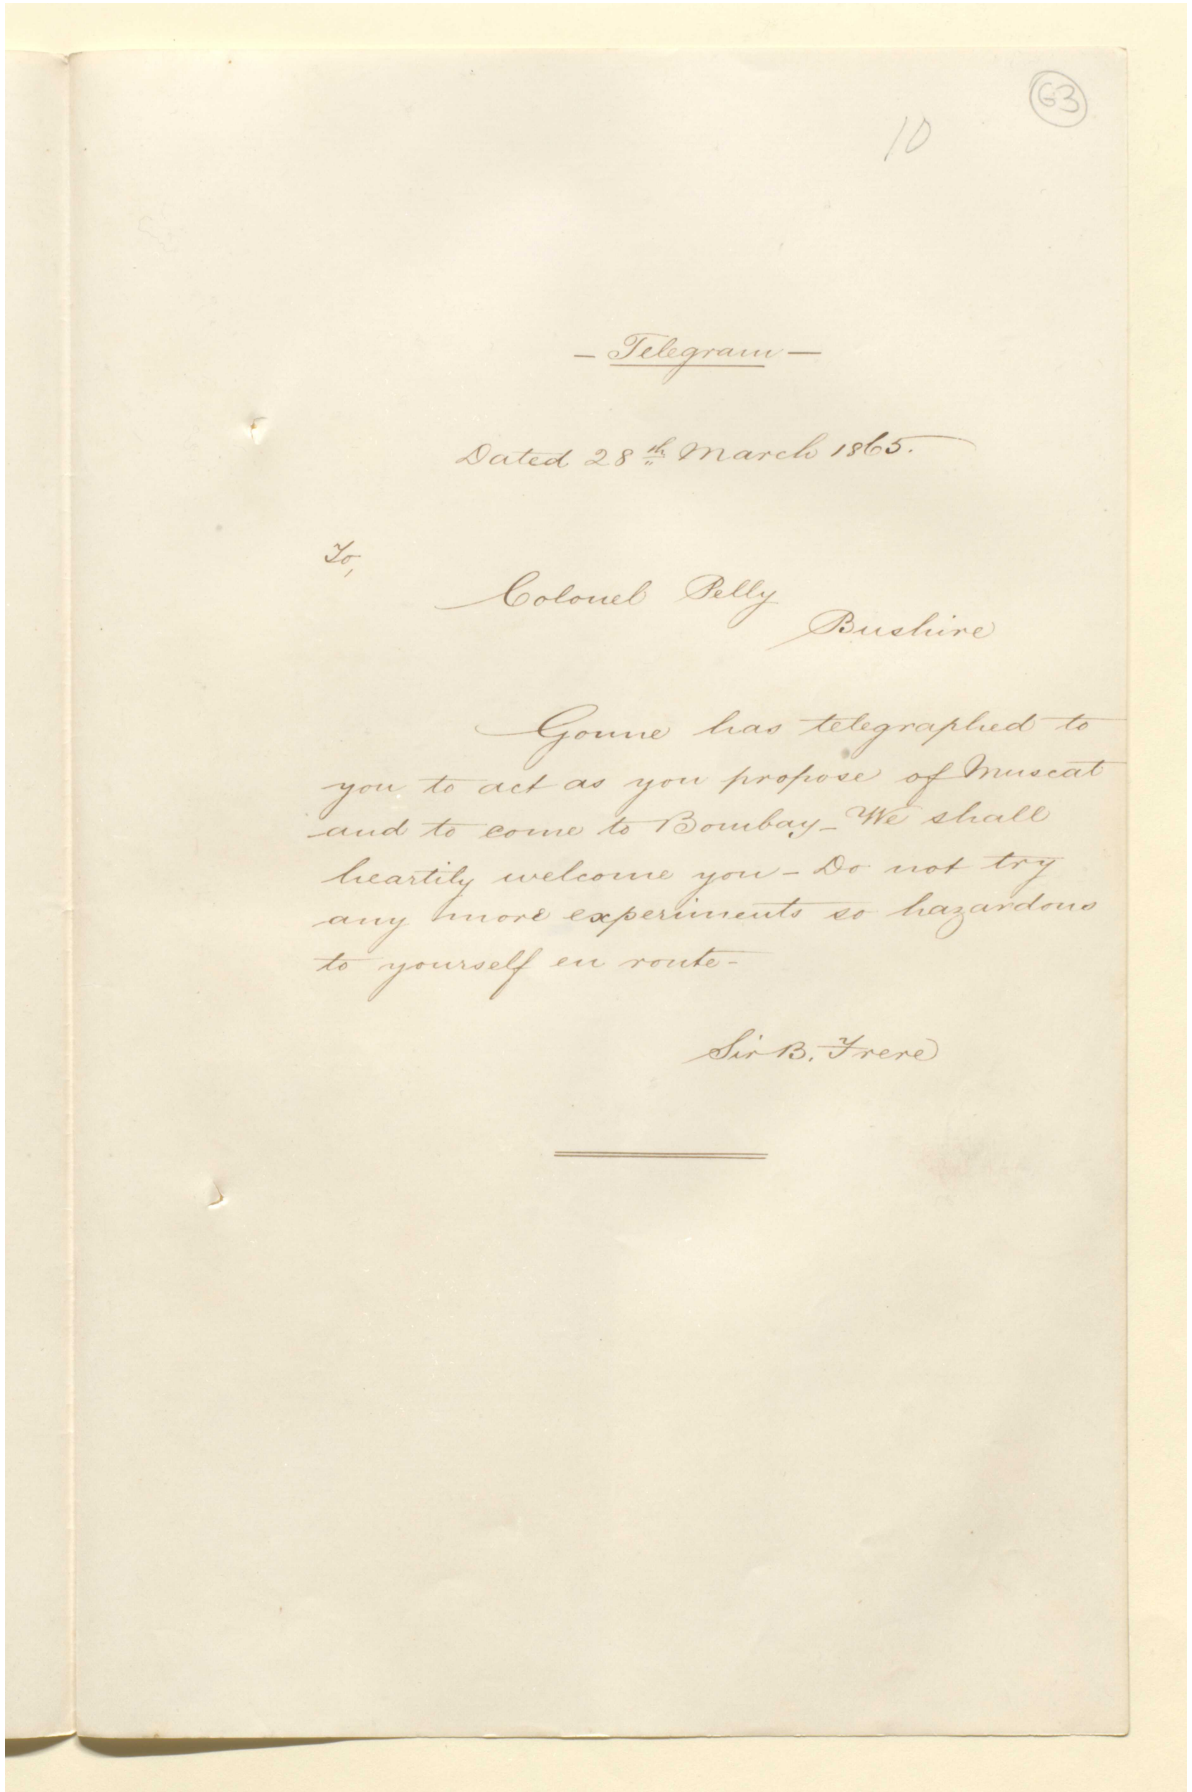 63
10
— Telegram —
Dated 28th March 1865.
To,
Colonel Pelly
Bushire
Gonne has telegraphed to
you to act as you propose of Muscat
and to come to Bombay - We shall
heartily welcome you - Do not try
any more experiments so hazardous
to yourself en route -
Sir B. Frere